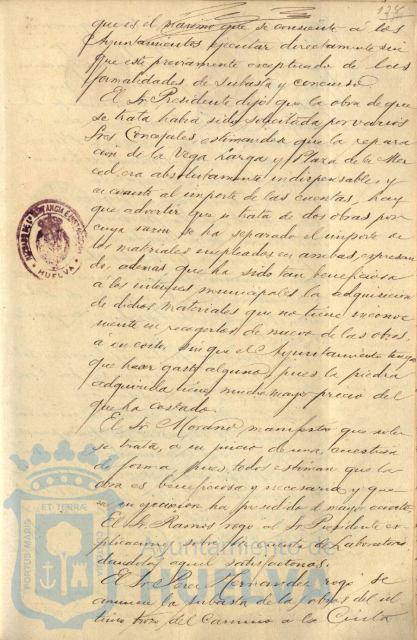 178
que es el maximo que se consiente á los
Ayuntamientos ejecutar directamente sin
que esté previamente exceptuado de las
formalidades de subasta y concurso.
El Sr. Presidente dijo: que la obra de que
se trata habia sido solicitada por varios
Sres Concejales, estimandose que la repara
cion de la Vega Larga y Plaza de la Mer
ced era absolutamente indispensable, y
en cuanto al importe de las cuentas, hay
que advertir que se trata de dos obras por
cuya razon se ha separado el importe de
los materiales empleados en ambas, expresan
do, ademas, que ha sido tan beneficiosa
a los intereses municipales la adquisicion
de dichos materiales que no tiene inconve
niente en recogerlos de nuevo de las obras,
á su costa, sin que el Ayuntamiento tenga
que hacer gasto alguno, pues la piedra
adquirida tiene mucho mayor precio del
que ha costado.
El Sr. Moreno manifestó que solo
se trata, a su juicio de una cuestion
de forma, pues todos estiman que la
obra es beneficiosa y necesaria y que
su ejecucion ha presidido el mayor acierto.
El Sr. Ramos rogó al Sr. Presidente ex
plicaciones sobre la cuenta de Laboratorio
dandolas aquel satisfactorias.
El Sr. Perez Hernandez rogó se
anuncie la subasta de las obras del ul
timo trozo del Camino a la Cinta
HUELVA
PORTUS MARIS
ET TERRAE
Ayuntamiento de
HUELVA